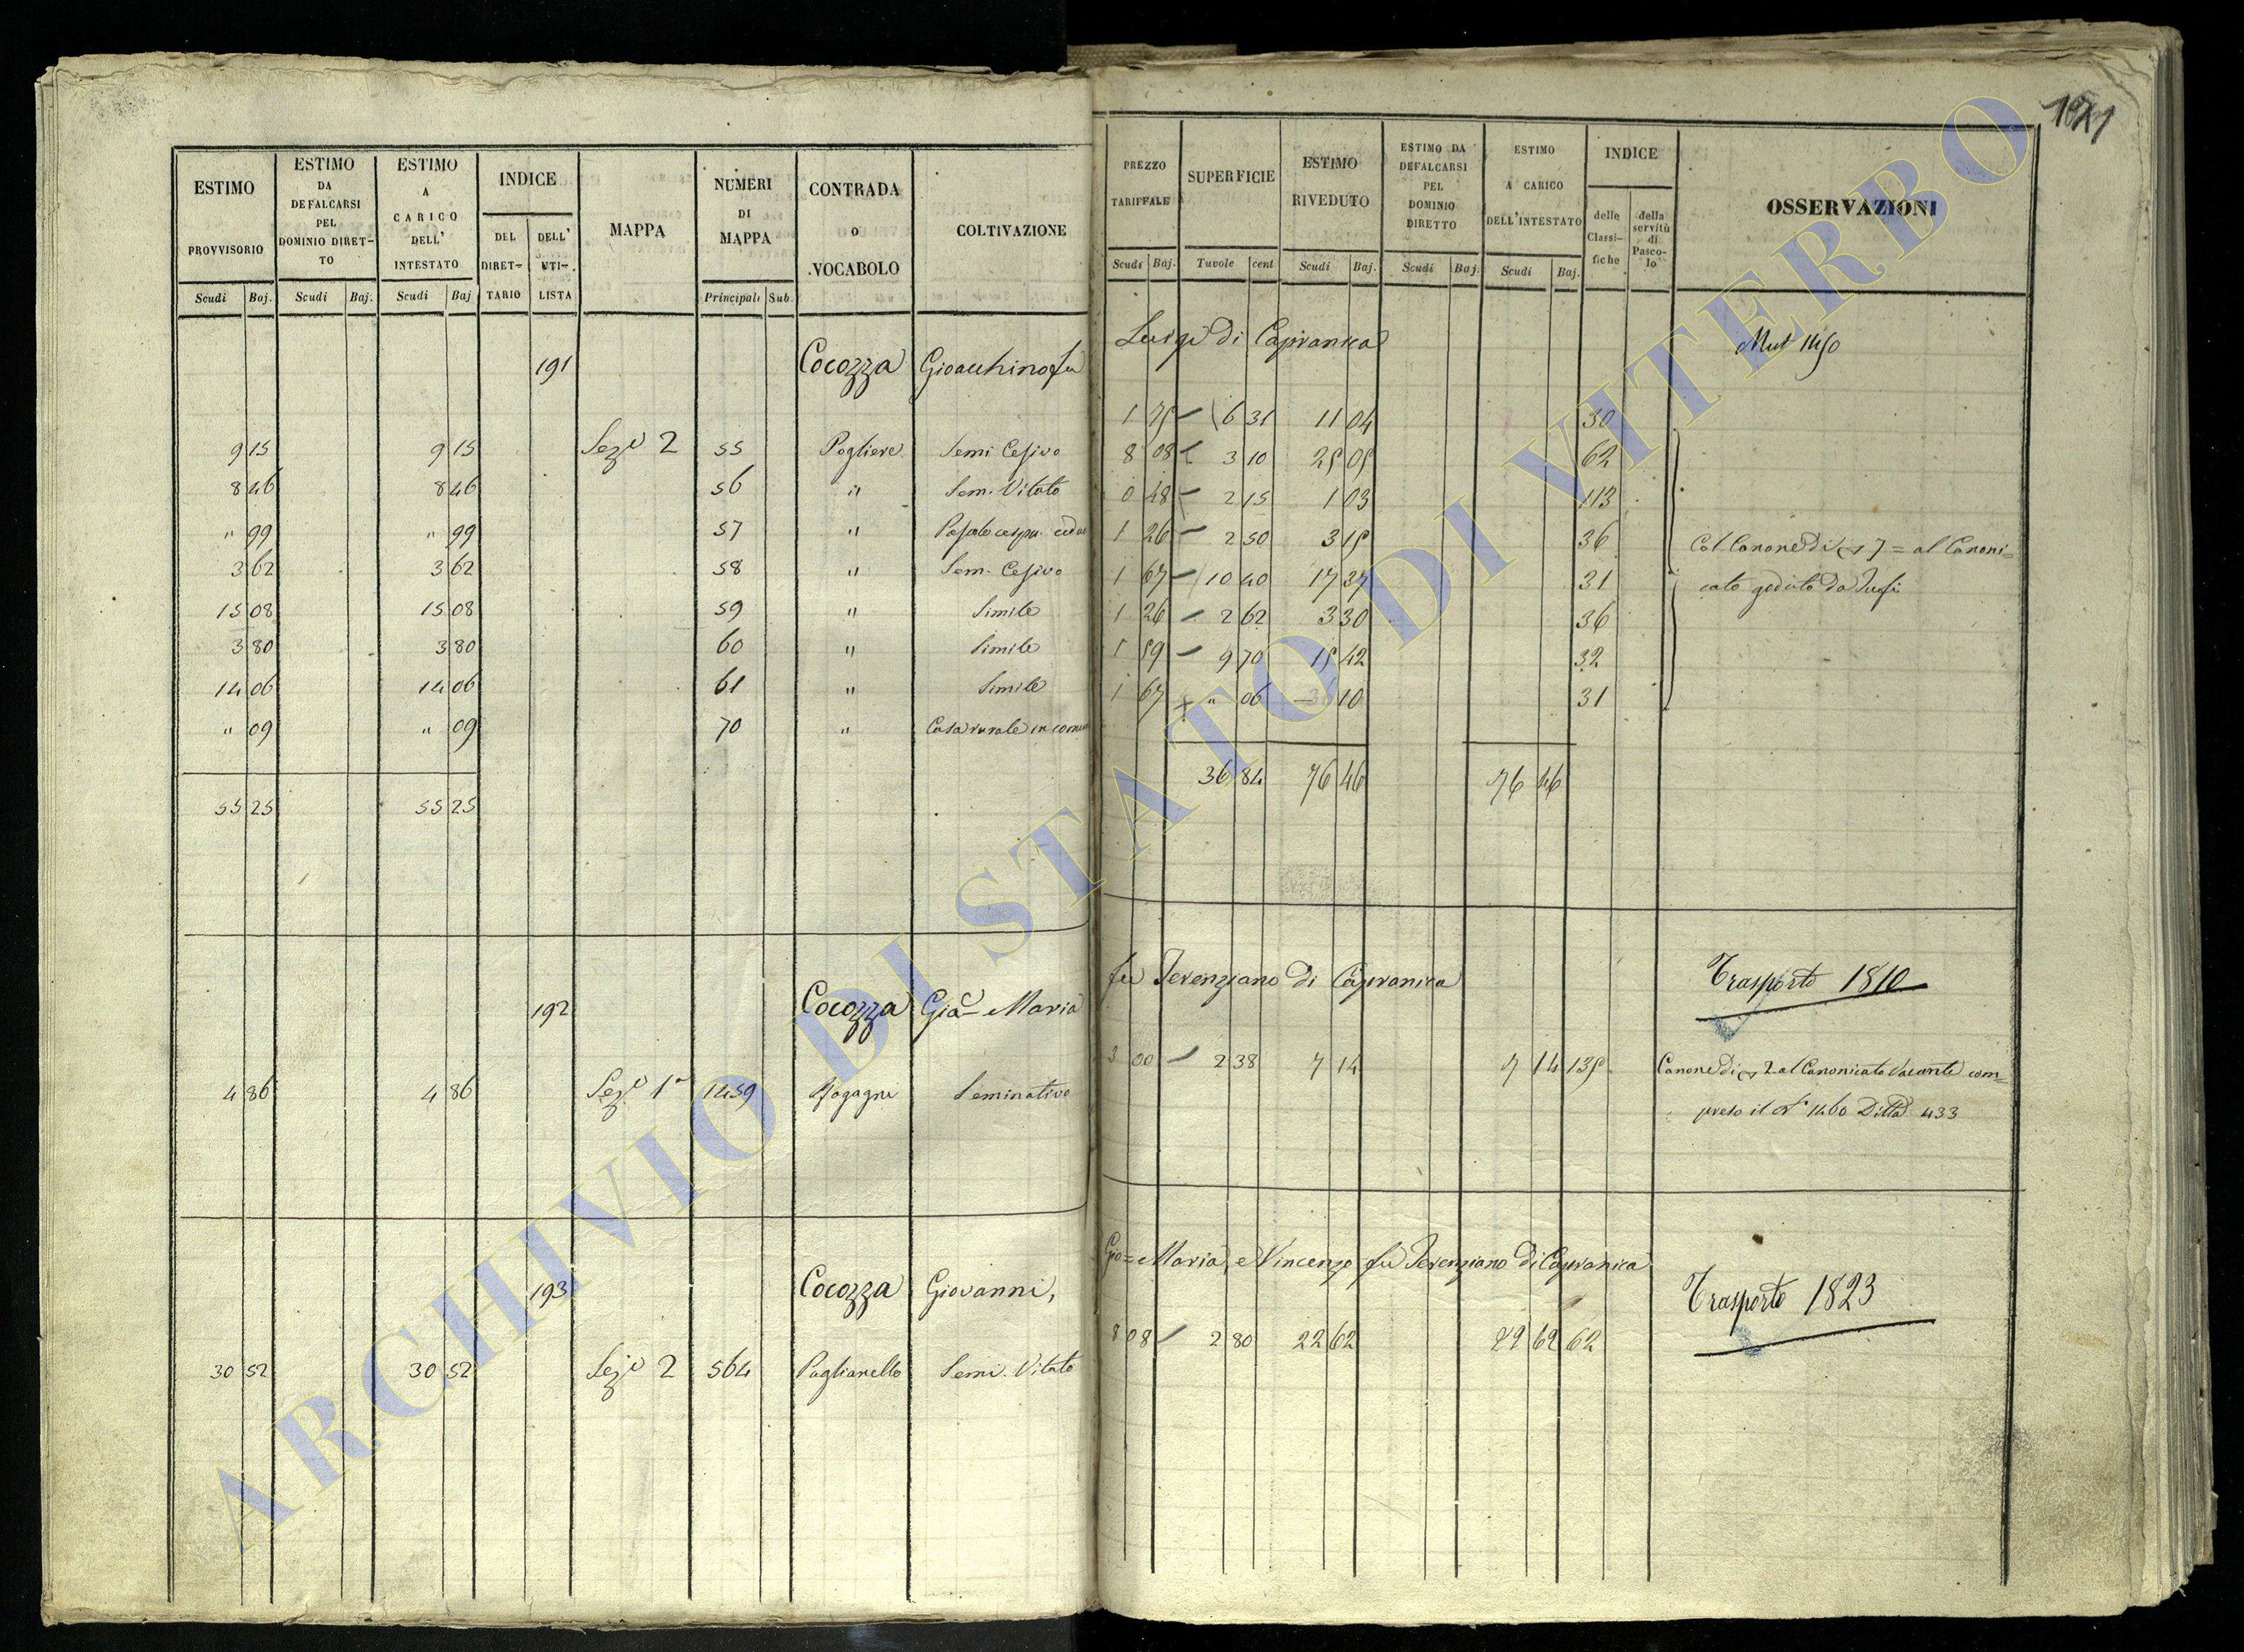 1971
ESTIMO PROVVISORIO
ESTIMO DA DEFALCARSI PEL DOMINIO DIRETTO
ESTIMO A CARICO DELL' INTESTATO
INDICE
DEL DIRETTARIO
DELL' UTILISTA
MAPPA
NUMERI DI MAPPA
CONTRADA O VOCABOLO
COLTIVAZIONE
PREZZO TARIFFALE
SUPERFICIE
ESTIMO RIVEDUTO
ESTIMO DA DEFALCARSI PEL DOMINIO DIRETTO
ESTIMO A CARICO DELL'INTESTATO
INDICE
delle Classifiche
della servitù di Pascolo
OSSERVAZIONI
Scudi Baj. Scudi Baj. Scudi Baj Principali Sub. Scudi Baj. Tuvole cent Scudi Baj. Scudi Baj. Scudi Baj.
191 Cocozza Gioacchino fu Luigi di Capranica Mut 1450
9 15 9 15 Seze 2 55 Pogliere Semi Cesivo 1 75 6 31 11 04 30
8 46 8 46 56 " Sem. Vitato 8 08 3 10 25 05 62
" 99 " 99 57 " Pascolo cespu. ceduo 0 48 2 15 1 03 113
3 62 3 62 58 " Sem. Cesivo 1 26 2 50 3 15 36
15 08 15 08 59 " Simile 1 67 10 40 17 37 31
3 80 3 80 60 " Simile 1 26 2 62 3 30 36
14 06 14 06 61 " Simile 1 59 9 70 15 42 32
" 09 " 09 70 " Casa rurale in comune 1 67 " 06 10 31
Col Canone di 7 = al Canoni=
cato goduto da
55 25 55 25 36 84 76 46 76 46
192 Cocozza Gio= Maria fu Terenziano di Capranica Trasporto 1810
4 86 4 86 Seze 1a 1459 Seminativo 3 00 2 38 7 14 7 14 135 Canone di 2 al Canonicato Vacante com=
preso il No 1460 Ditta 433
193 Cocozza Giovanni, Gio= Maria, e Vincenzo fu Terenziano di Capranica Trasporto 1823
30 52 30 52 Seze 2 564 Paglianello Semi. Vitato 8 08 2 80 22 62 22 62 62
ARCHIVIO DI STATO DI VITERBO